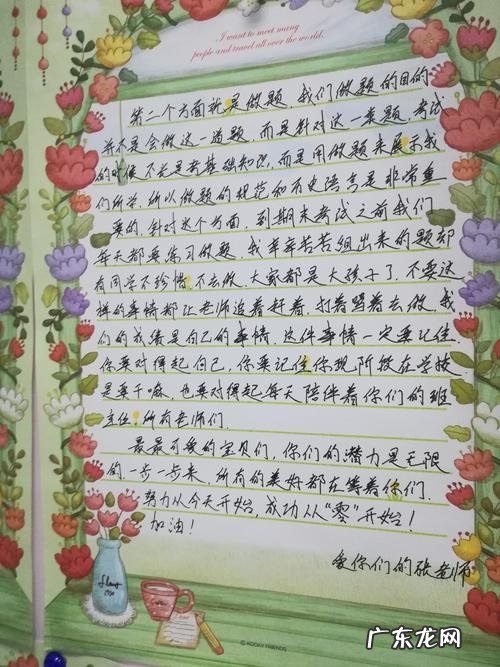 I want to meet many
people and travel all over the world.
第二个方面就是做题，我们做题的目的
并不是会做这一道题，而是针对这一类题，考试
的时候不光是考基础知识，而是用做题来展示我
们所学，所以做题的规范和历史语言是非常重
要的，针对这个方面，到期末考试之前我们
每天都要练习做题，我辛辛苦苦组出来的题却
有同学不珍惜，不去做，大家都是大孩子了，不要这
样的事情都让老师追着赶着，打着骂着去做，我
们的成绩是自己的事情，这件事情一定要记住，
你要对得起自己，你要记住你现阶段在学校
是要干嘛，也要对得起每天陪伴着你们的班
主任，所有老师们。
最最可爱的宝贝们，你们的潜力是无限
的，一步一步来，所有的美好都在等着你们，
努力从今天开始，成功从“零”开始！
加油！
爱你们的张老师
© KOOKY FRIENDS
广东龙网